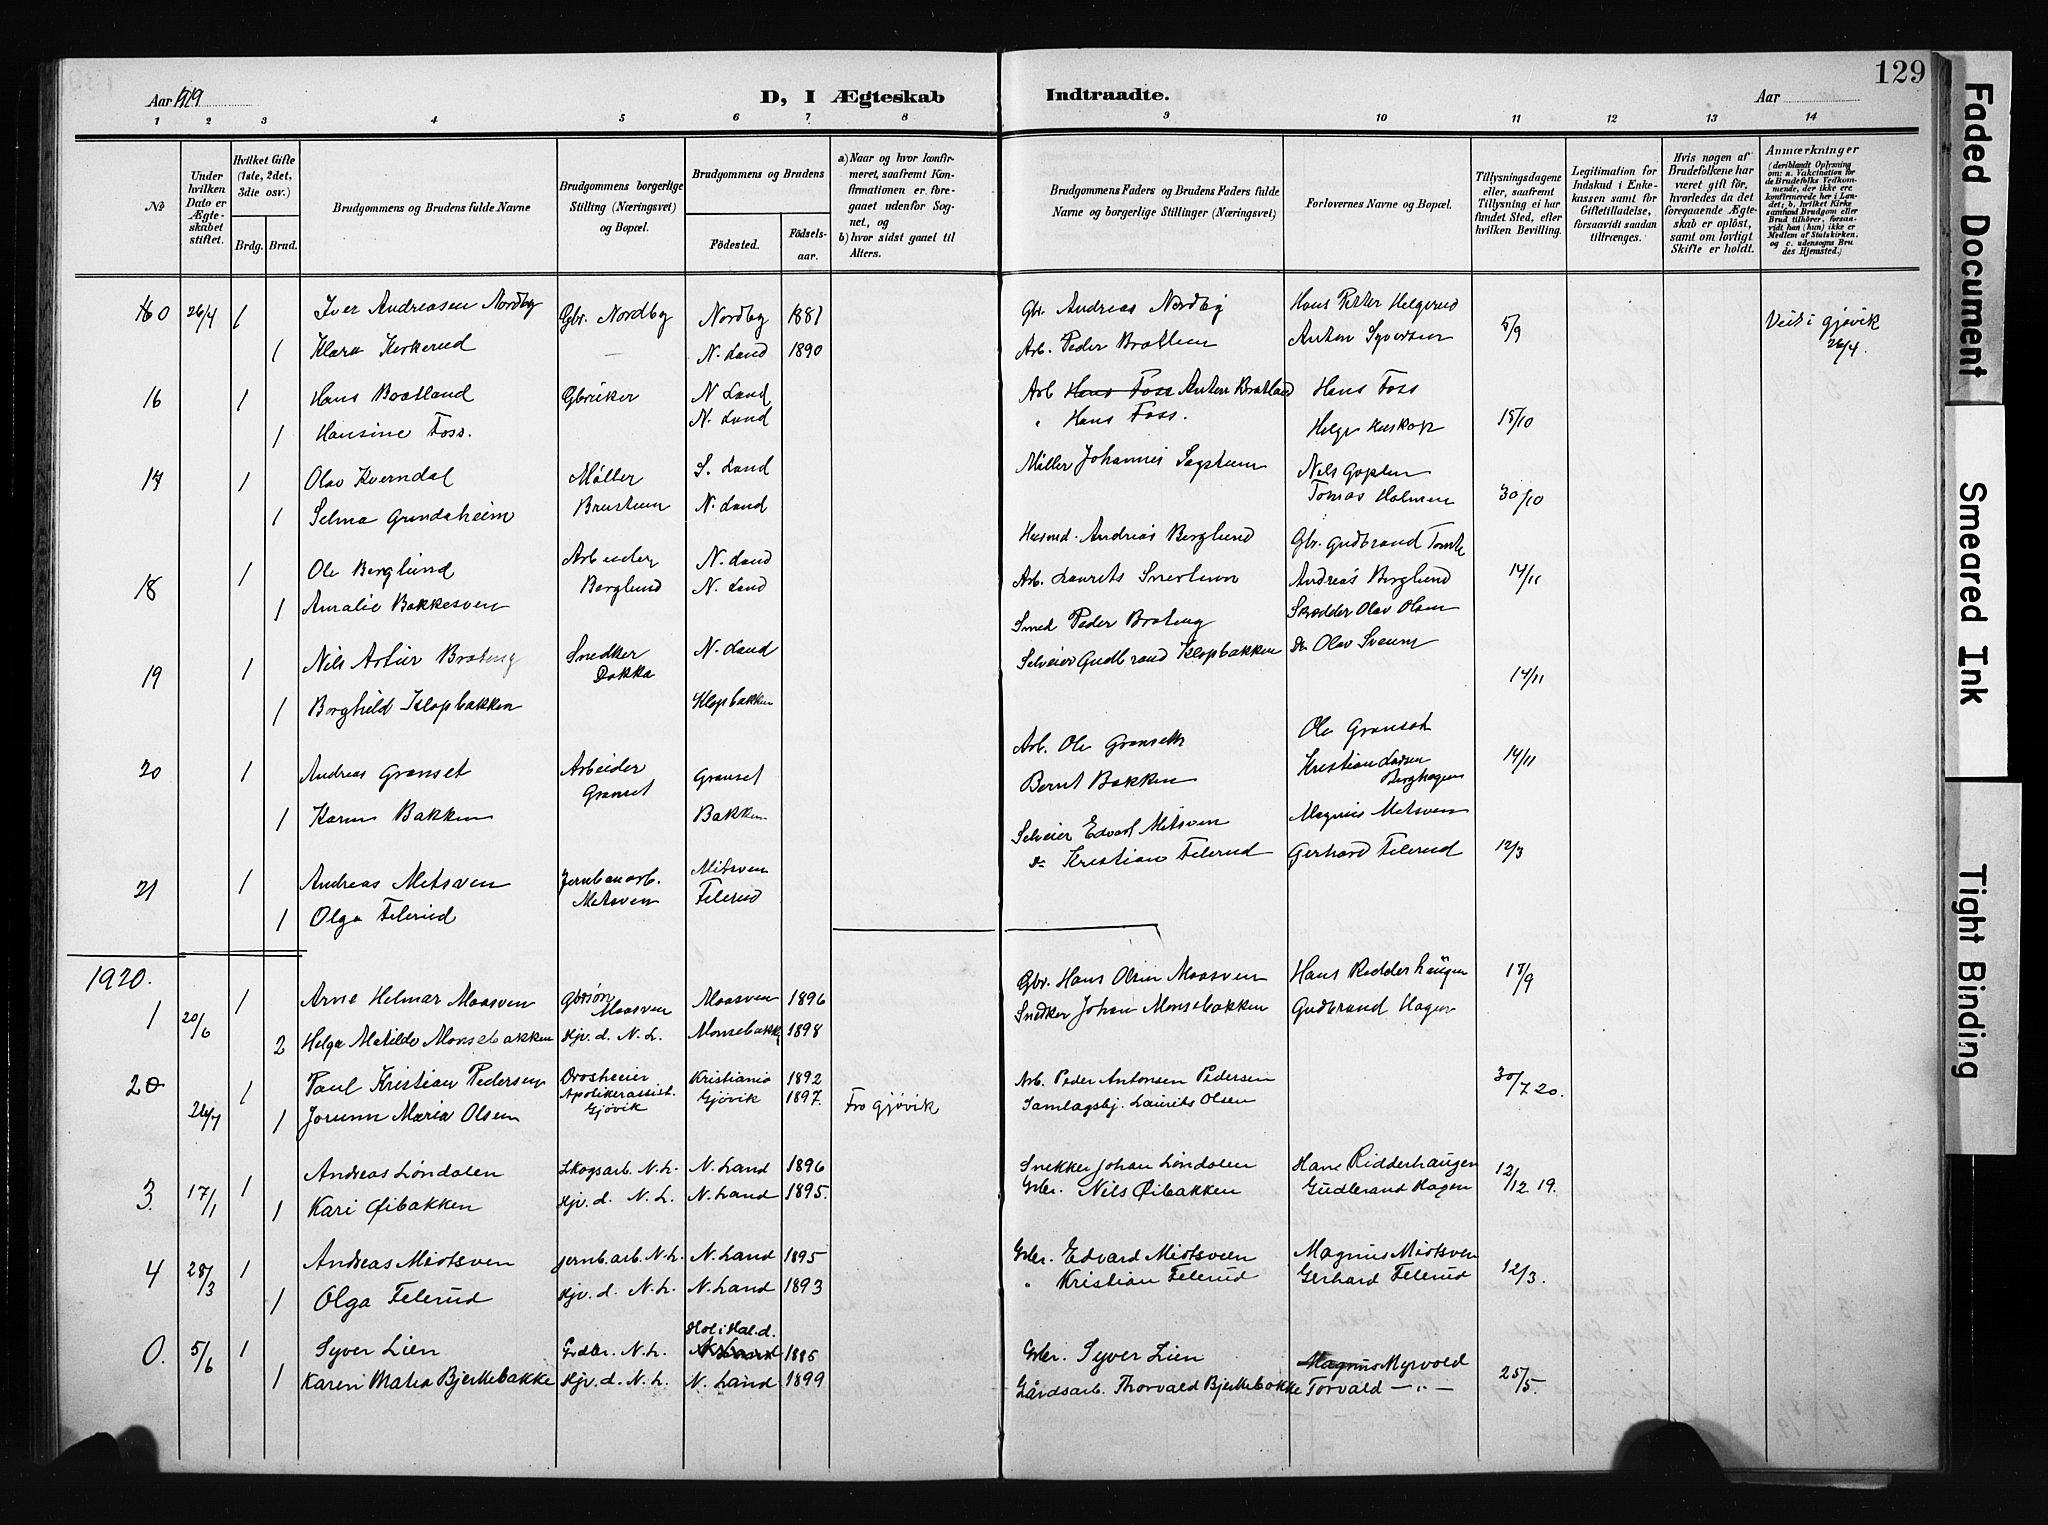 129
Aar 1919
D, I Ægteskab
Indtraadte.
Aar
1 2 3 4 5 6 7 8 9 10 11 12 13 14
No
Under hvilken Dato er Ægteskabet stiftet.
Hvilket Gifte (1ste, 2det, 3die osv.)
Brdg. Brud.
Brudgommens og Brudens fulde Navne
Brudgommens borgerlige Stilling (Næringsvei) og Bopæl.
Brudgommens og Brudens
Fødested. Fødselsaar.
a) Naar og hvor konfirmeret, saafremt Konfirmationen er foregaaet udenfor Sognet, og
b) hvor sidst gaael til Alters.
Brudgommens Faders og Brudens Faders fulde Navne og borgerlige Stillinger (Næringsvei)
Forlovernes Navne og Bopæl.
Tillysningsdagene eller, saafremt Tillysning ei har fundet Sted, efter hvilken Bevilling.
Legitimation for Indskud i Enkekassen samt for Giftetilladelse, forsaavidt saadan tiltrænges.
Hvis nogen af Brudefolkene har været gift før, hvorledes da det foregaaende Ægteskab er opløst, samt om lovligt Skifte er holdt.
Anmærkninger (deriblandt Oplysning om: a. Vakcination for de Brudefolks Vedkommende, der ikke ere konfirmerede her i Landet; b. hvilket Kirkesamfund Brudgom eller Brud tilhører, forsaavidt han (hun) ikke er Medlem af Statskirken. og c. udensogns Brudes Hjemsted.)
0 26/4 1 Iver Andreasen Nordby Gbr. Nordby Nordby 1881 Gbr. Andreas Nordby Hans Petter Helgerud 5/9 Viet i Gjøvik
1 Klara Kirkerud — N. Land 1890 Arb. Peder Bratlien Anton Syversen 26/4.
16 1 Hans Bratland Gbruker N Land Arb Hans Foss Anton Bratland Hans Foss
1 Hansine Foss. N. Land " Hans Foss. Helge 15/10
17 1 Olav Kverndal Møller S. Land Møller Johannes Nils
1 Selma Grindaheim N. Land Tomas Holmen 30/10
18 1 Ole Berglund Arbeider N. Land Husmd. Andreas Berglund Gbr. Gudbrand Tomle
1 Amalie Bakkesven Berglund N. Land Arb. Laurits Andreas Berglund 14/11
19 1 Nils Artur Brateng Snedker Dokka N. Land Smed Peder Brateng Skrædder Olav Olsen
1 Borghild Klopbakken Klopbakken Selveier Gudbrand Klopbakken Do Olav Sveum 14/11
20 1 Andreas Granset Arbeider Granset Granset Arb. Ole Granseth Ole Granset
1 Karen Bakken Bakken Bernt Bakken Kristian Larsen Berghagen 14/11
21 1 Andreas Metsven Jernbanarb. Metsven Metsven Selveier Edvart Metsven Magnus Metsven
1 Olga Felerud Felerud Do Kristian Felerud Gerhard Felerud 12/3
1920.
1 20/6 1 Arne Helmar Maasven Gbrsøn Maasven Maasven 1896 Gbr. Hans Olsen Maasven Hans Ridderhaugen 17/9
2 Helga Matilde Monsebakken Hjv. d. N. L. Monsebakk 1898 Snedker Johan Monsebakken Gudbrand Hagen
20 1 Paul Kristian Pedersen Droskeeier Kristiania 1892 Arb. Peder Antonsen Pedersen 30/7 20.
1 Jorunn Maria Olsen Apotikerassist. Gjøvik Gjøvik 1897. Fra Gjøvik Samlagsbj. Laurits Olsen
3 17/1 1 Andreas Løndalen Skogsarb. N. L. N. Land 1896 Snekker Johan Løndalen Hans Ridderhaugen 12/12 19.
1 Kari Øibakken Hjv. d. N. L. N. Land 1895. Grbr. Nils Øibakken Gudbrand Hagen
4 28/3 1 Andreas Miotsven Jernb.arb. N. L. N. Land 1895 Grbr. Edvard Miotsveen Magnus Miotsven
1 Olga Felerud Hjv. d. N. L. N. Land 1893 " Kristian Felerud Gerhard Felerud 12/3.
0. 5/6 1 Syver Lien Grdbr. N. L. Hol i Hal.d. N. Land 1885 Grbr. Syver Lien Magnus Myrvold
1 Karen Matea Bjerkebakke Hjv. d. N. L. N. Land 1899 Gårdsarb. Thorvald Bjerkebakke Torvald — " — 25/5.
Faded Document
Smeared Ink
Tight Binding